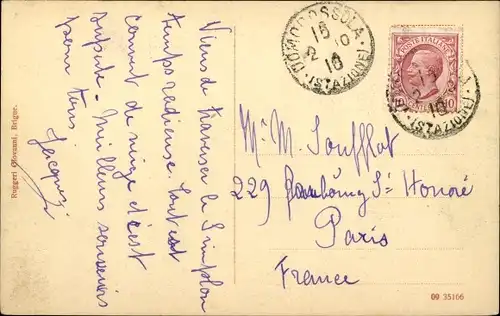 Viens de traverser le Simplon
temps radieuse. Tout est
couvert de neige c'est
superbe. Meilleurs souvenirs
pour tous.
Jacques
Ruggeri Giovanni, Belgur.
DOMODOSSOLA
(STAZIONE)
15
2 10
10
POSTE ITALIANE
10
(STAZIONE)
10
Mr M. Soufflot
229 Faubourg St Honoré
Paris
France
09 35166